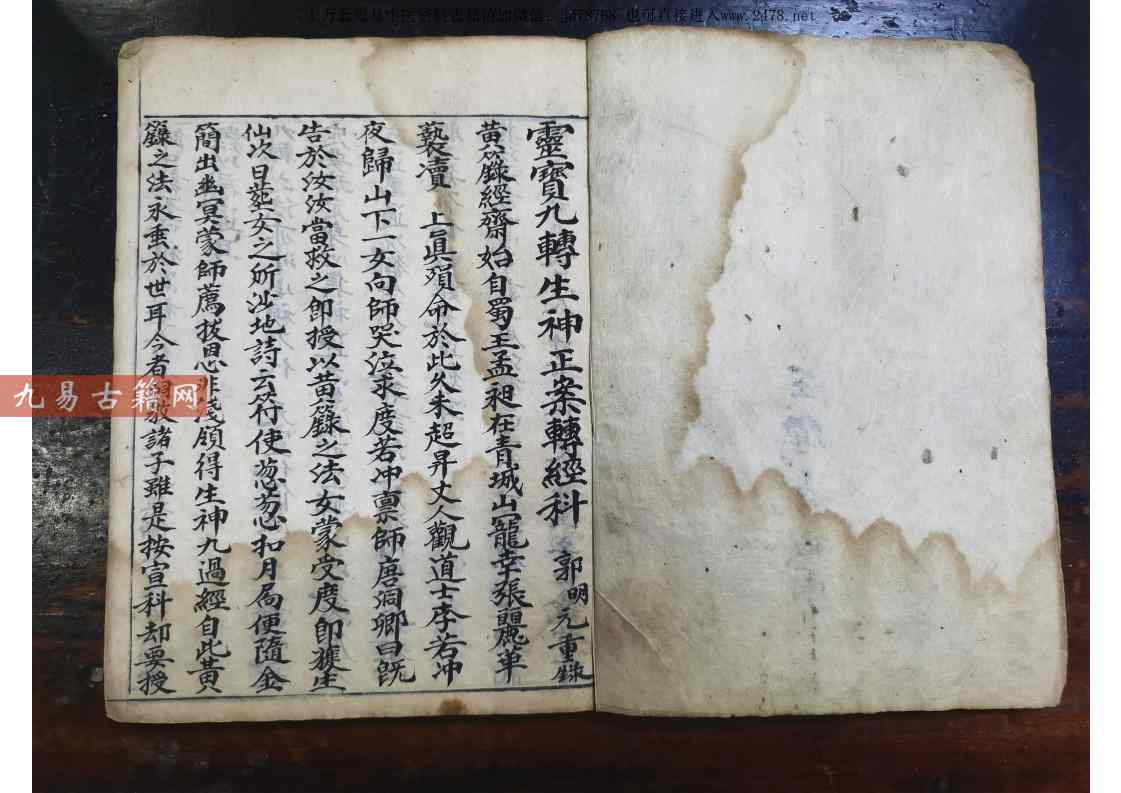 也可直接进入www.2478.net
靈寶九轉生神正案轉經科 郭明元重錄
黃籙經齋始自蜀王孟昶在青城山寵幸張麗華
褻瀆 上真殞命於此久未超昇丈人觀道士李若冲
夜歸山下一女向師哭泣求度若冲禀師唐洞卿曰既
告於汝汝當救之即授以黃籙之法女蒙受度即獲生
仙次日塟女之所沙地詩云符使怱怱扣月局便隨金
簡出幽冥蒙師薦拔恩非淺領得生神九過經自此黃
籙之法永垂於世耳今者 諸子雖是按宣科却要授
九易古籍网